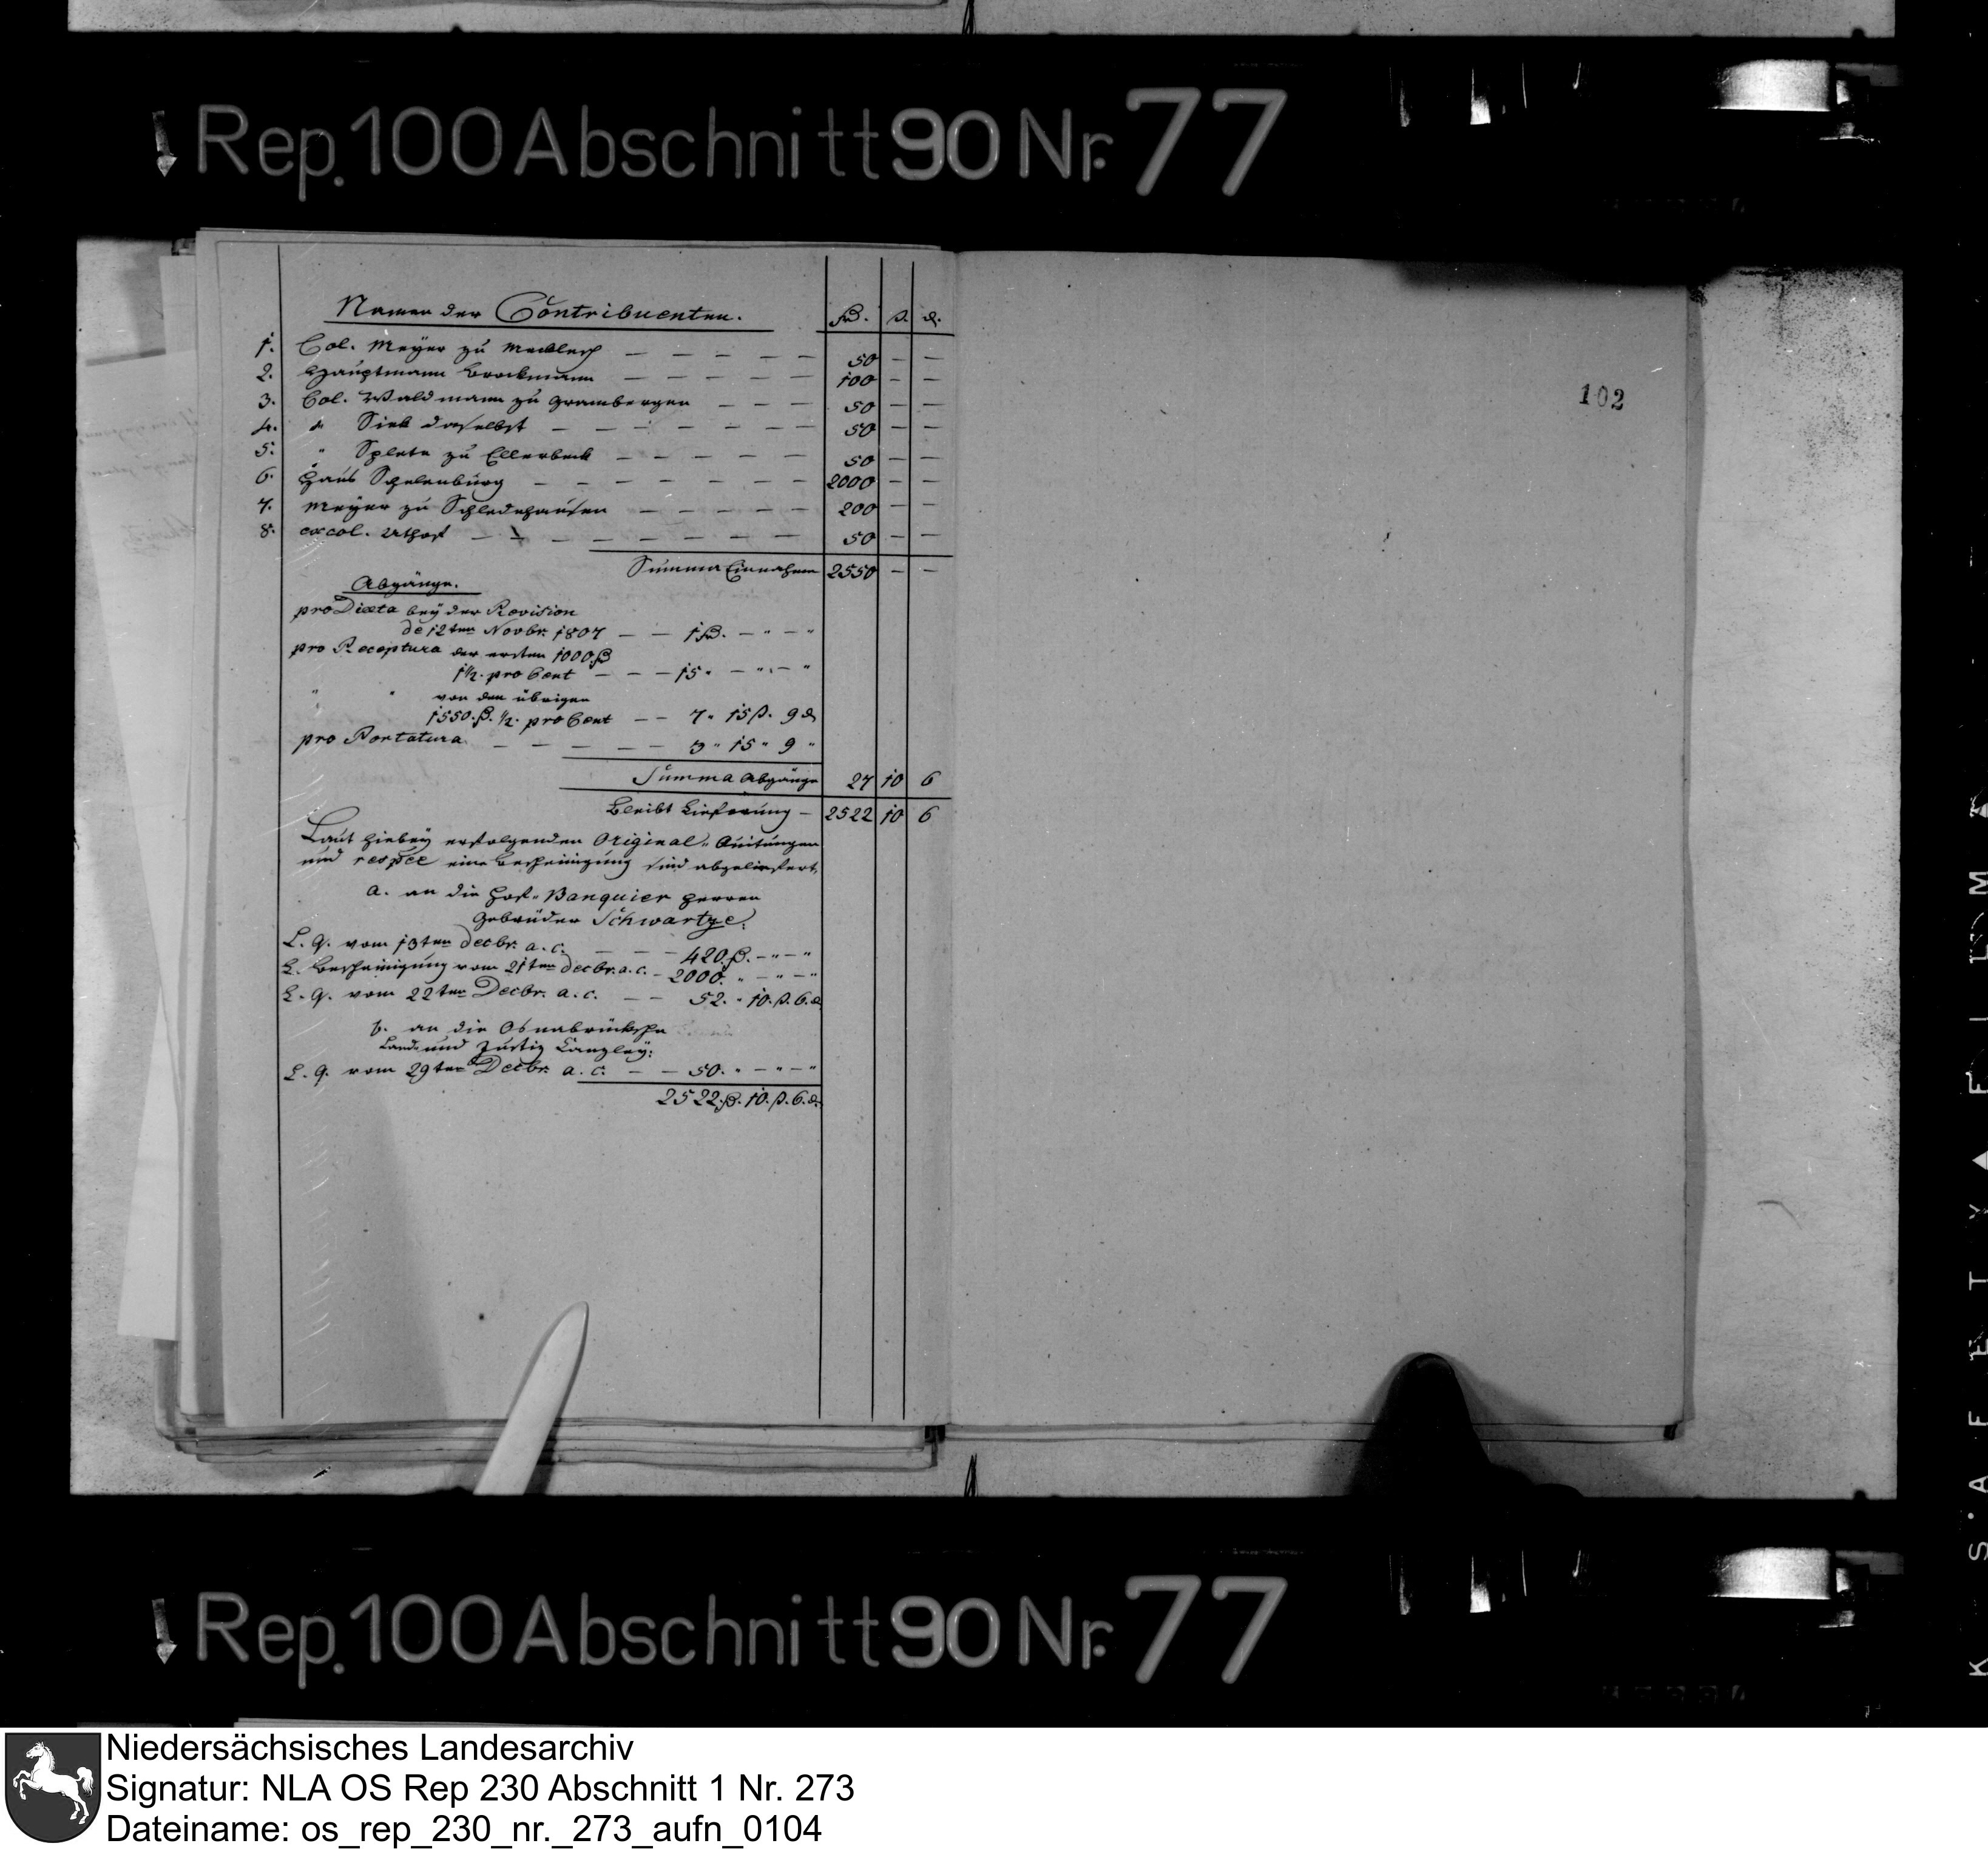 Rep. 100 Abschnitt 90 Nr. 77
Namen der Contribuenten. rt. ß. d.
1. Col. Meyer zu — — — — — 50 — —
2. Hauptmann Brockmann — — — — — 100 — —
3. Col. Waldmann zu Grambergen — — — 50 — —
4. " Siek daselbst — — — — — — — 50 — —
5. " Splete zu Ellerbeck — — — — — 50 — —
6. Haus Schelenburg — — — — — — — 2000 — —
7. Meyer zu Schledehausen — — — — — 200 — —
8. excol. Uthof — — — — — — — — 50 — —
Summa Einnahme 2550 — —
Abgänge.
pro Diaeta bey der Revision
de 12ten Novbr. 1807 — — 1 rt. — " — "
pro Receptura der ersten 1000 rt
1½. pro Cent — — — 15 " — " — "
" " von den übrigen
1550. rt. ½. pro Cent — — 7 " 15 ß. 9 d
pro Portatura — — — — — 3 " 15 " 9 "
Summa Abgänge 27 10 6
Bleibt Lieferung — 2522 10 6
Laut hiebey erfolgenden Original-Quitungen
und respee eine Bescheinigung sind abgeliefert,
a. an die Hof-Banquier Herren
Gebrüder Schwartze:
L. Q. vom 13ten Decbr. a. c. — — — 420. rt. — " — "
L. Bescheinigung vom 21ten Decbr. a. c. — 2000. " — " — "
L. Q. vom 22ten Decbr. a. c. — — 52. " 10. ß. 6. d
b. an die Osnabrücksche
Land- und Justiz Canzley:
L. Q. vom 29ten Decbr. a. c. — — 50. " — " — "
2522. rt. 10. ß. 6. d.
102
Rep. 100 Abschnitt 90 Nr. 77
Niedersächsisches Landesarchiv
Signatur: NLA OS Rep 230 Abschnitt 1 Nr. 273
Dateiname: os_rep_230_nr._273_aufn_0104